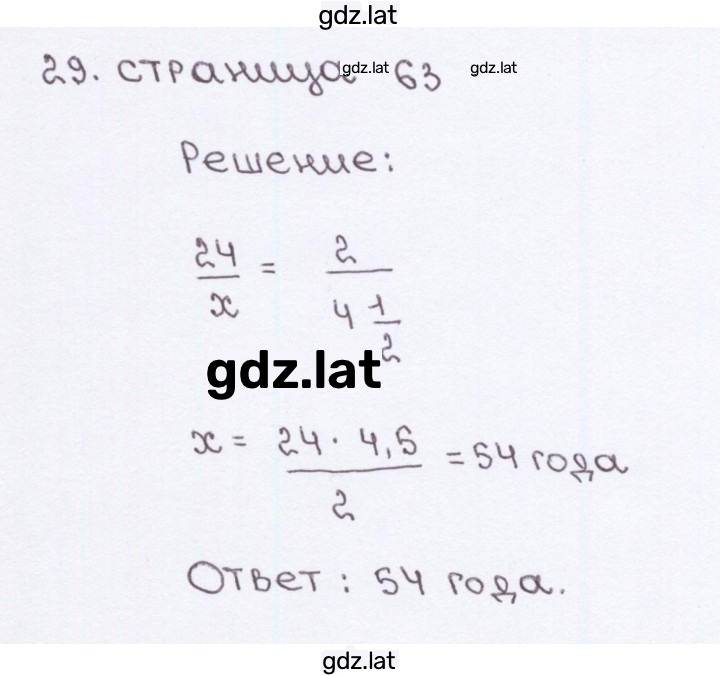 gdz.lat
29. страница gdz.lat 63 gdz.lat
Решение:
24/x = 2/4 1/2
gdz.lat
x = 24 · 4,5/2 = 54 года
Ответ: 54 года.
gdz.lat